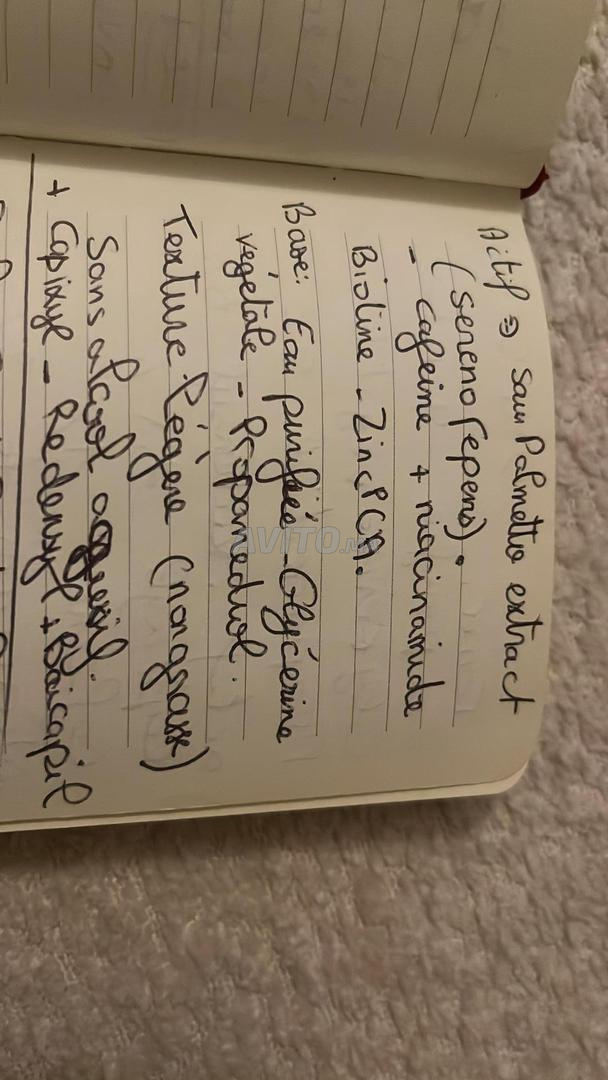 Actif ⇒ Saw Palmetto extract
(serenoa repens).
- cafeine + niacinamide
Biotine - Zinc PCA.
Base: Eau purifiée - Glycérine
végétale - Propanediol.
Texture légère (non grasse)
Sans alcool
+ Capixyl - Redensyl + Baicapil
AVITO.ma